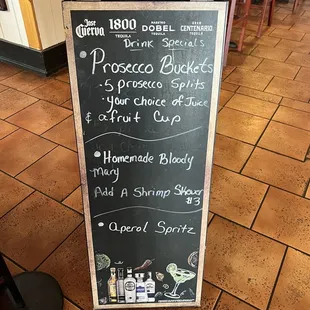 Jose Cuervo 1800 TEQUILA MAESTRO DOBEL TEQUILA GRAN CENTENARIO TEQUILA
Drink Specials
Prosecco Buckets
- 5 prosecco Splits
- your choice of Juice
& a fruit Cup
• Homemade Bloody
Mary
Add A Shrimp Skewer
$3
• Aperol Spritz